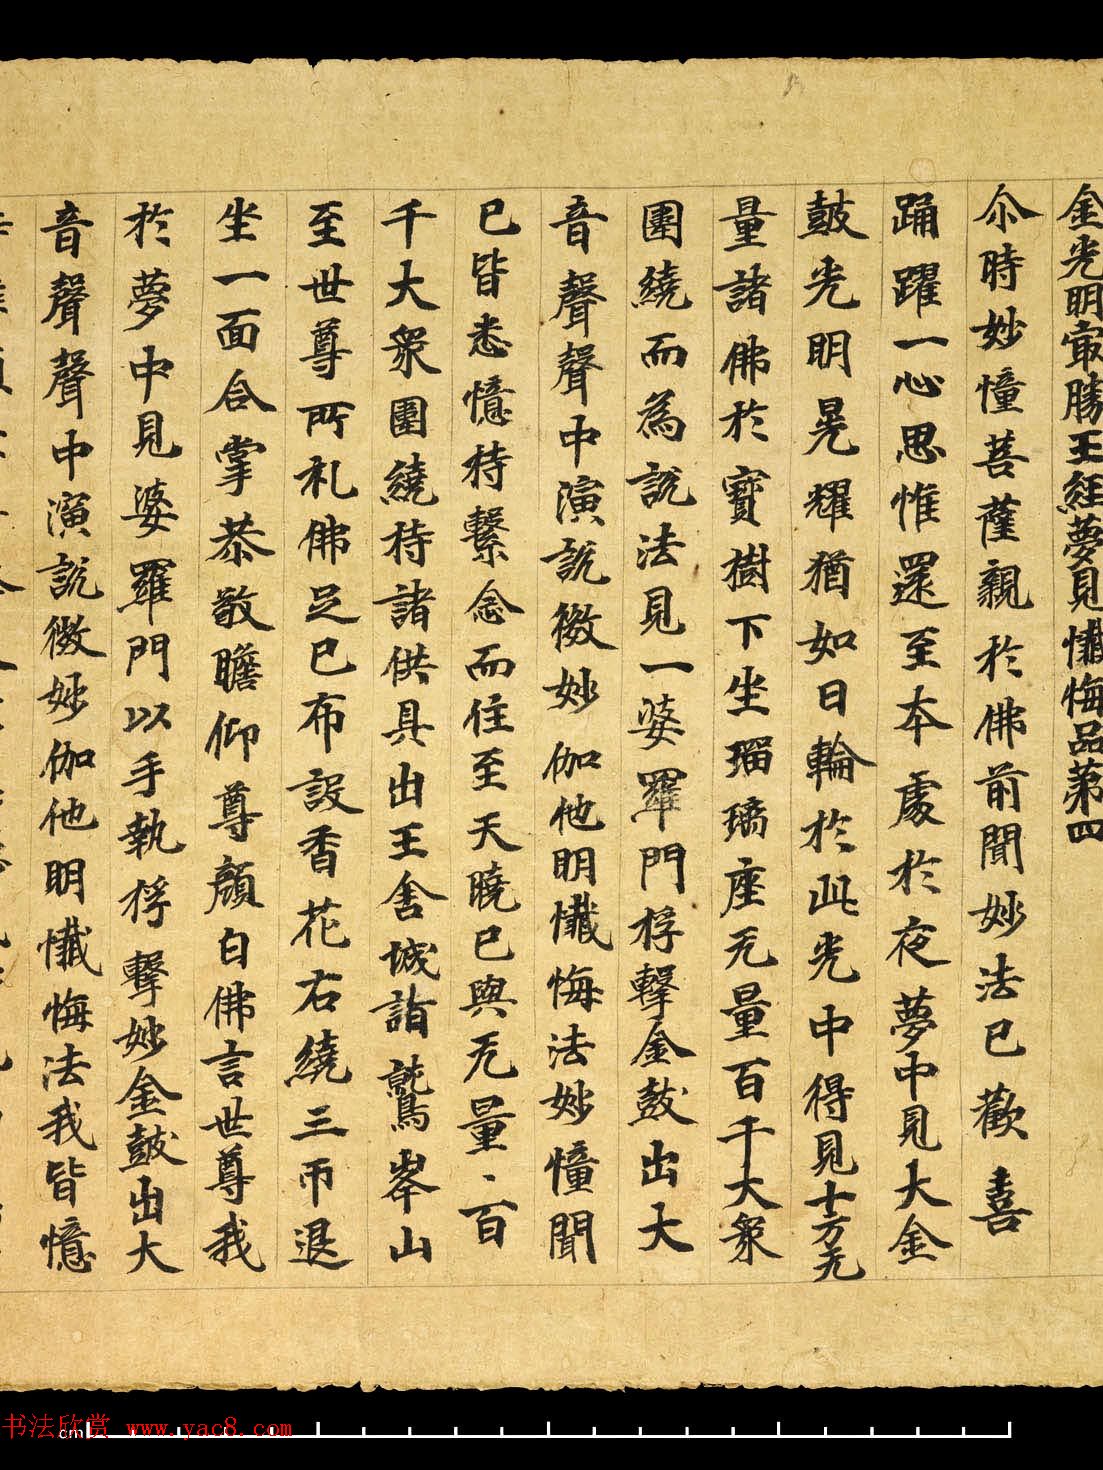 金光明冣勝王經夢見懺悔品第四
尒時妙幢菩薩親於佛前聞妙法已歡喜
踊躍一心思惟還至本處於夜夢中見大金
鼓光明晃耀猶如日輪於此光中得見十方无
量諸佛於寶樹下坐瑠璃座无量百千大衆
圍繞而為說法見一婆羅門桴擊金鼓出大
音聲聲中演說微妙伽他明懺悔法妙幢聞
已皆悉憶持繫念而住至天曉已與无量百
千大衆圍繞持諸供具出王舍城詣鷲峯山
至世尊所礼佛足已布設香花右繞三帀退
坐一面合掌恭敬瞻仰尊顏白佛言世尊我
於夢中見婆羅門以手執桴擊妙金鼓出大
音聲聲中演說微妙伽他明懺悔法我皆憶
书法欣赏 www.yac8.com
cm